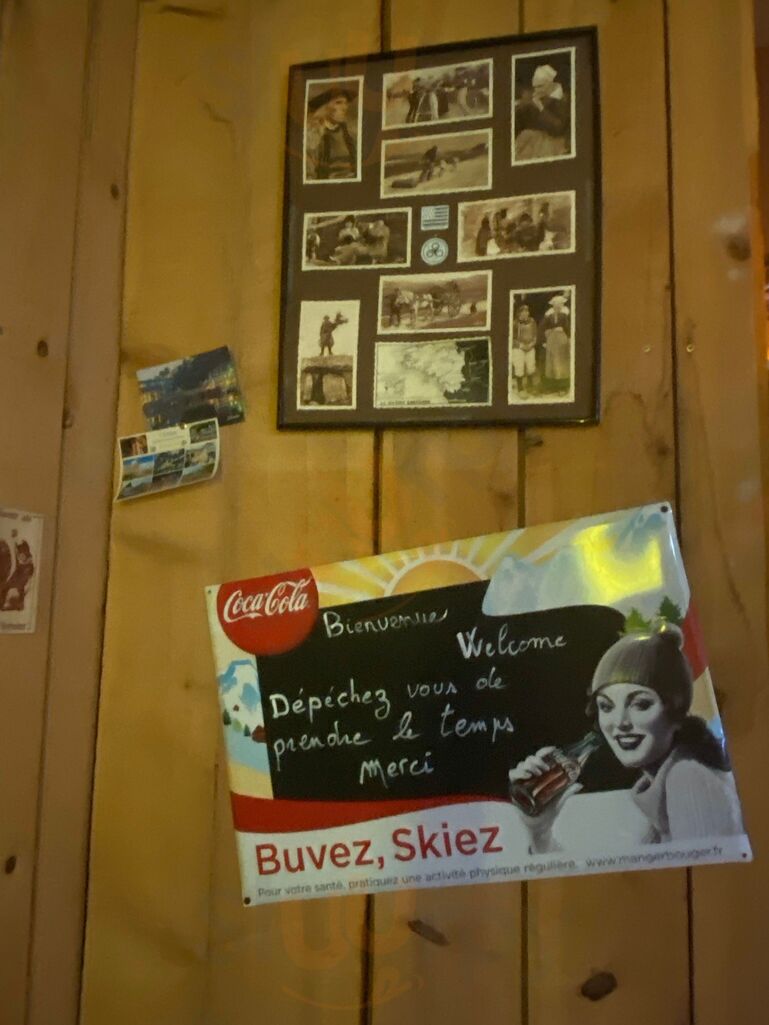 Coca-Cola
Bienvenue
Welcome
Dépéchez vous de
prendre le temps
Merci
Buvez, Skiez
Pour votre santé, pratiquez une activité physique régulière. www.mangerbouger.fr